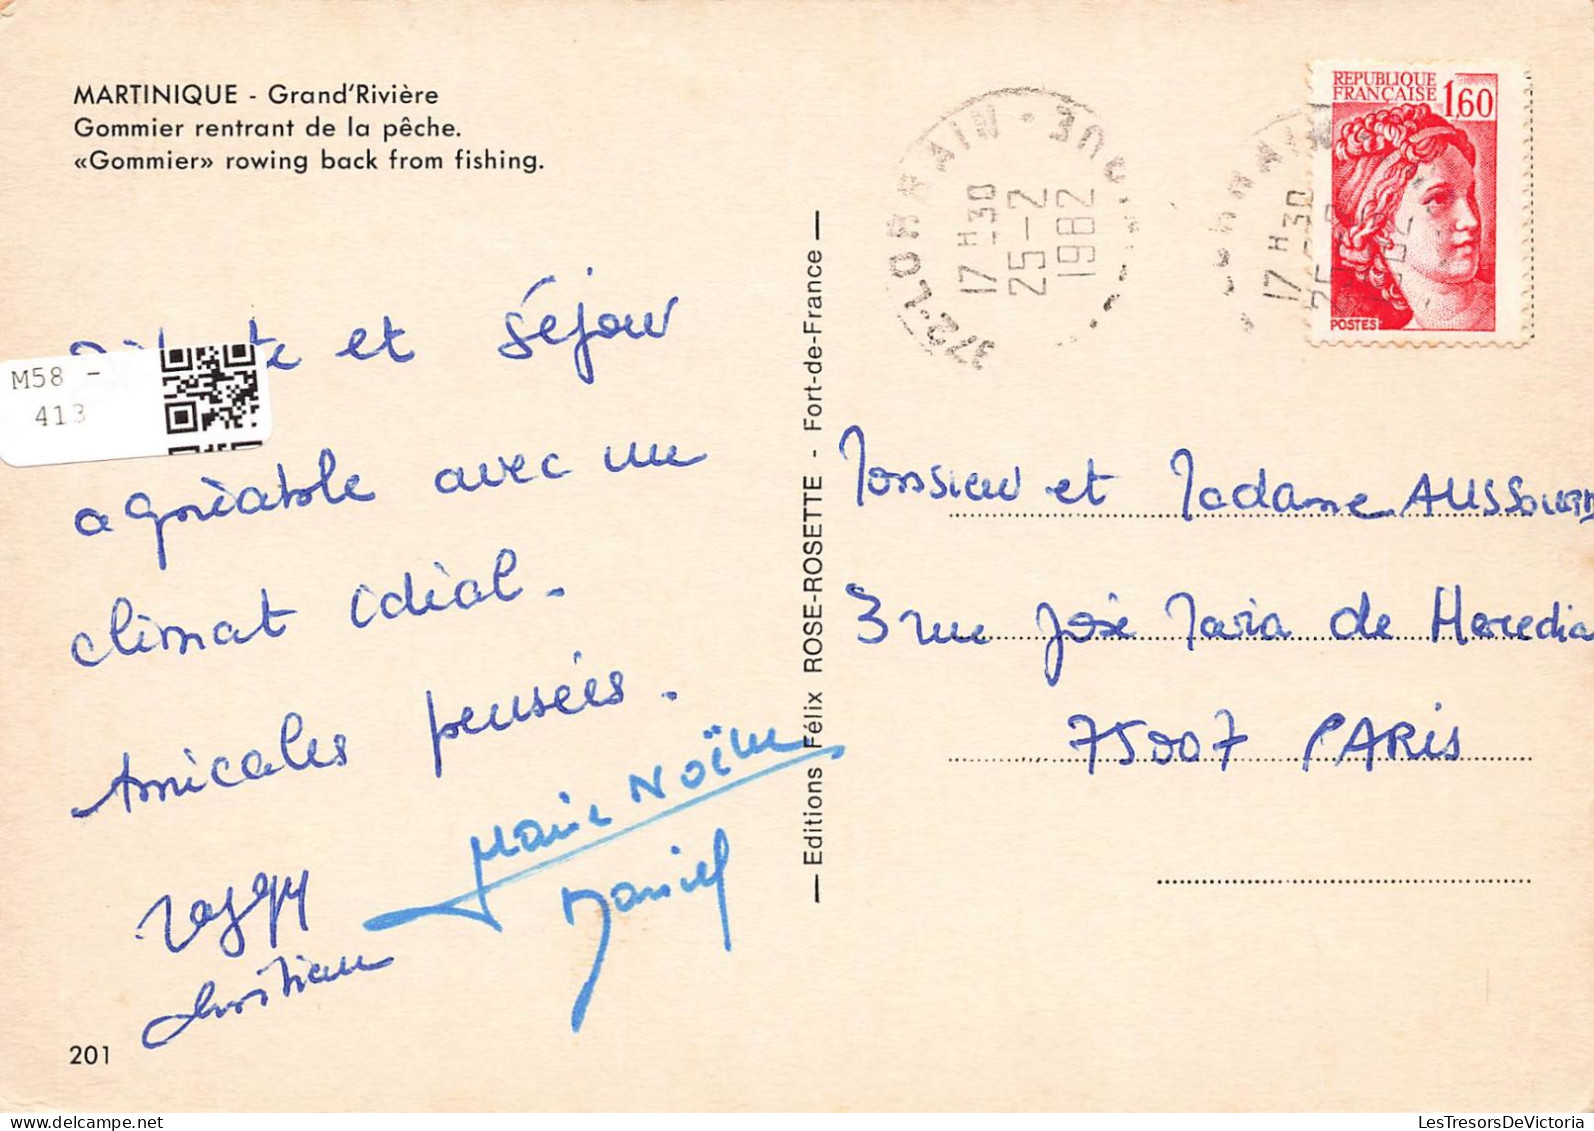 MARTINIQUE - Grand'Rivière
Gommier rentrant de la pêche.
«Gommier» rowing back from fishing.
et séjour
agréable avec un
climat idéal.
Amicales pensées.
Marie Noëlle
Daniel
Christian
201
M58 -
413
— Editions Félix ROSE-ROSETTE - Fort-de-France —
972·LORRAIN
17H30
25-2
1982
17H30
REPUBLIQUE
FRANÇAISE
1,60
POSTES
Monsieur et Madame
3 rue José Maria de Heredia
75007 PARIS
LesTresorsDeVictoria